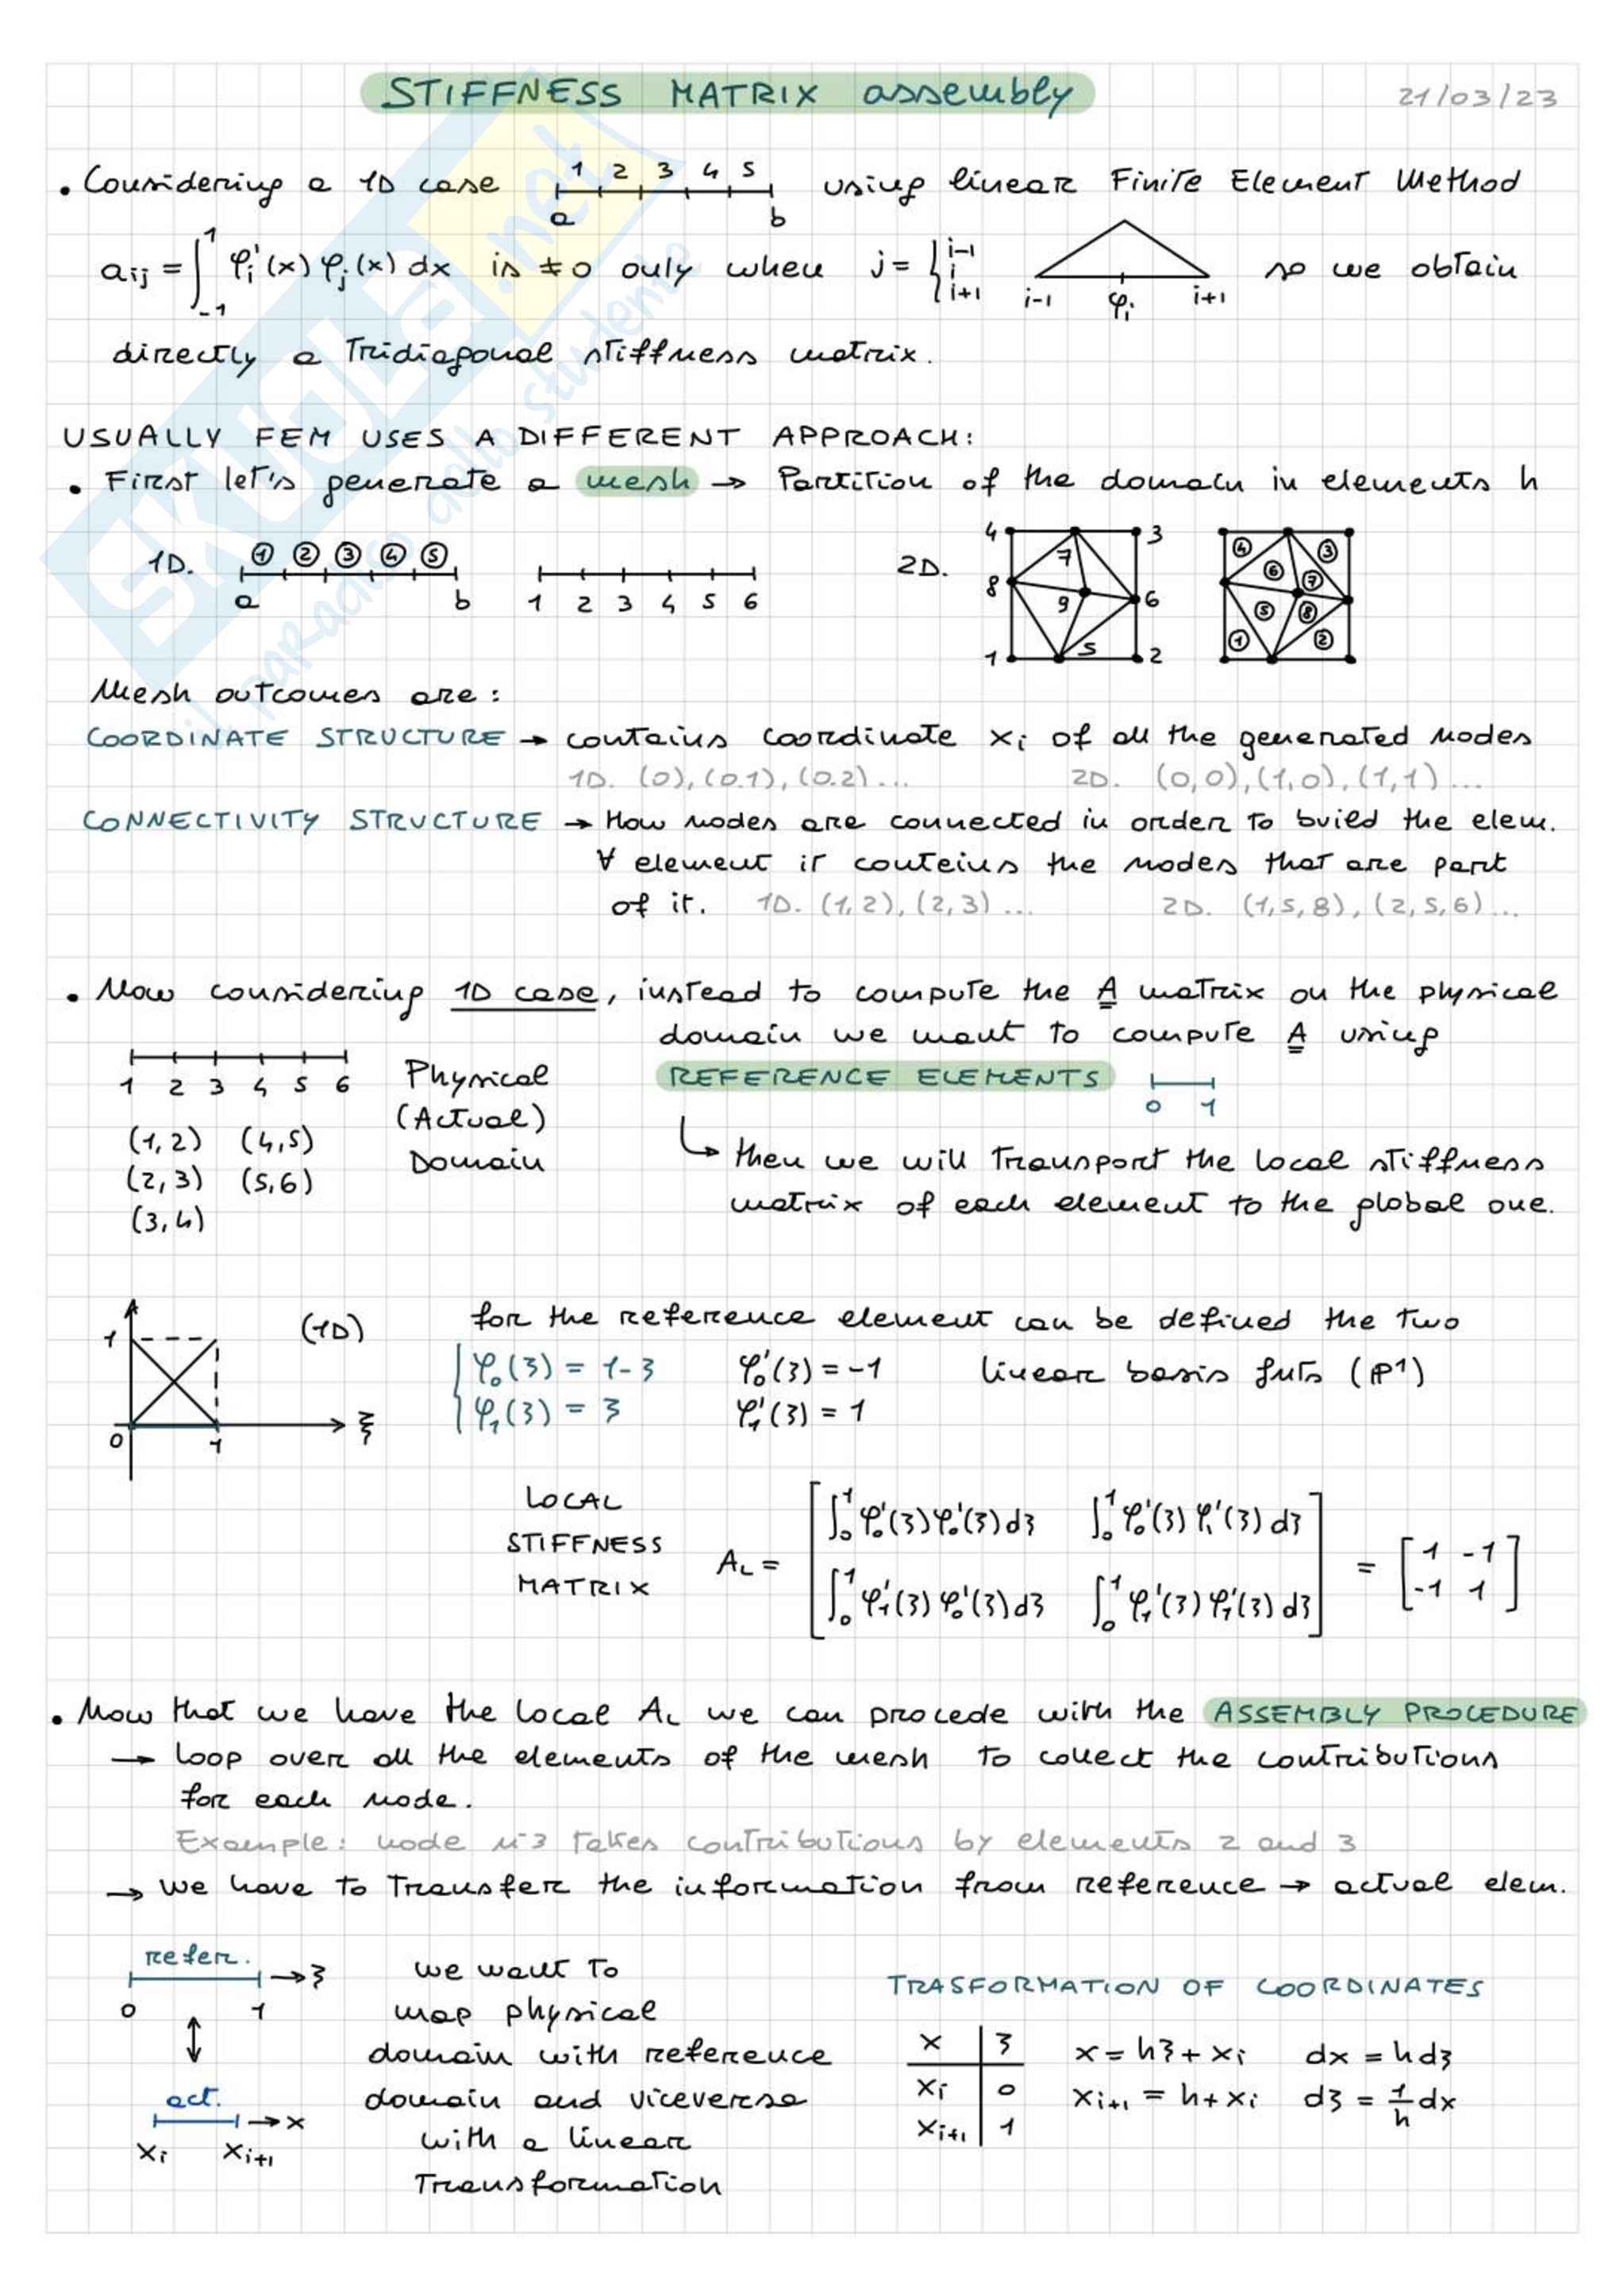 STIFFNESS MATRIX assembly 21/03/23
• Considering a 1D case 1 2 3 4 5 a b using linear Finite Element Method
aij = ∫_{-1}^{1} φi'(x) φj(x) dx is ≠0 only when j = { i-1 i i+1 i-1 φi i+1 so we obtain
directly a Tridiagonal stiffness matrix.
USUALLY FEM USES A DIFFERENT APPROACH:
• First let's generate a mesh → Partition of the domain in elements h
1D. ① ② ③ ④ ⑤ a b 1 2 3 4 5 6 2D. 4 3 7 8 9 6 1 5 2 ④ ③ ⑥ ⑦ ⑤ ⑧ ① ②
Mesh outcomes are:
COORDINATE STRUCTURE → contains coordinate xi of all the generated nodes
1D. (0), (0.1), (0.2)... 2D. (0,0), (1,0), (1,1)...
CONNECTIVITY STRUCTURE → How nodes are connected in order to buied the elem.
∀ element it conteins the nodes that are part
of it. 1D. (1,2), (2,3)... 2D. (1,5,8), (2,5,6)...
• Now considering 1D case, instead to compute the A matrix on the physical
domain we want to compute A using
1 2 3 4 5 6 Physical REFERENCE ELEMENTS 0 1
(Actual)
(1,2) (4,5) Domain ↳ then we will Transport the local stiffness
(2,3) (5,6) matrix of each element to the global one.
(3,4)
1 (1D) for the reference element can be defined the two
φ0(ξ) = 1-ξ φ0'(ξ) = -1 linear basis futs (P1)
φ1(ξ) = ξ φ1'(ξ) = 1
0 1 ξ
LOCAL
STIFFNESS
MATRIX
AL = [ ∫_0^1 φ0'(ξ) φ0'(ξ) dξ ∫_0^1 φ0'(ξ) φ1'(ξ) dξ
∫_0^1 φ1'(ξ) φ0'(ξ) dξ ∫_0^1 φ1'(ξ) φ1'(ξ) dξ ] = [ 1 -1
-1 1 ]
• Now that we have the local AL we can procede with the ASSEMBLY PROCEDURE
→ loop over all the elements of the mesh to collect the contributions
for each node.
Example: node n°3 takes contributions by elements 2 and 3
→ we have to Transfer the information from reference → actual elem.
refer. → ξ we want to TRASFORMATION OF COORDINATES
0 1 map physical
↕ domain with reference x ξ x = hξ + xi dx = hdξ
act. → x domain and viceversa xi 0 xi+1 = h + xi dξ = 1/h dx
xi xi+1 with a linear xi+1 1
Transformation
SKUOLA.net
il paradiso dello studente